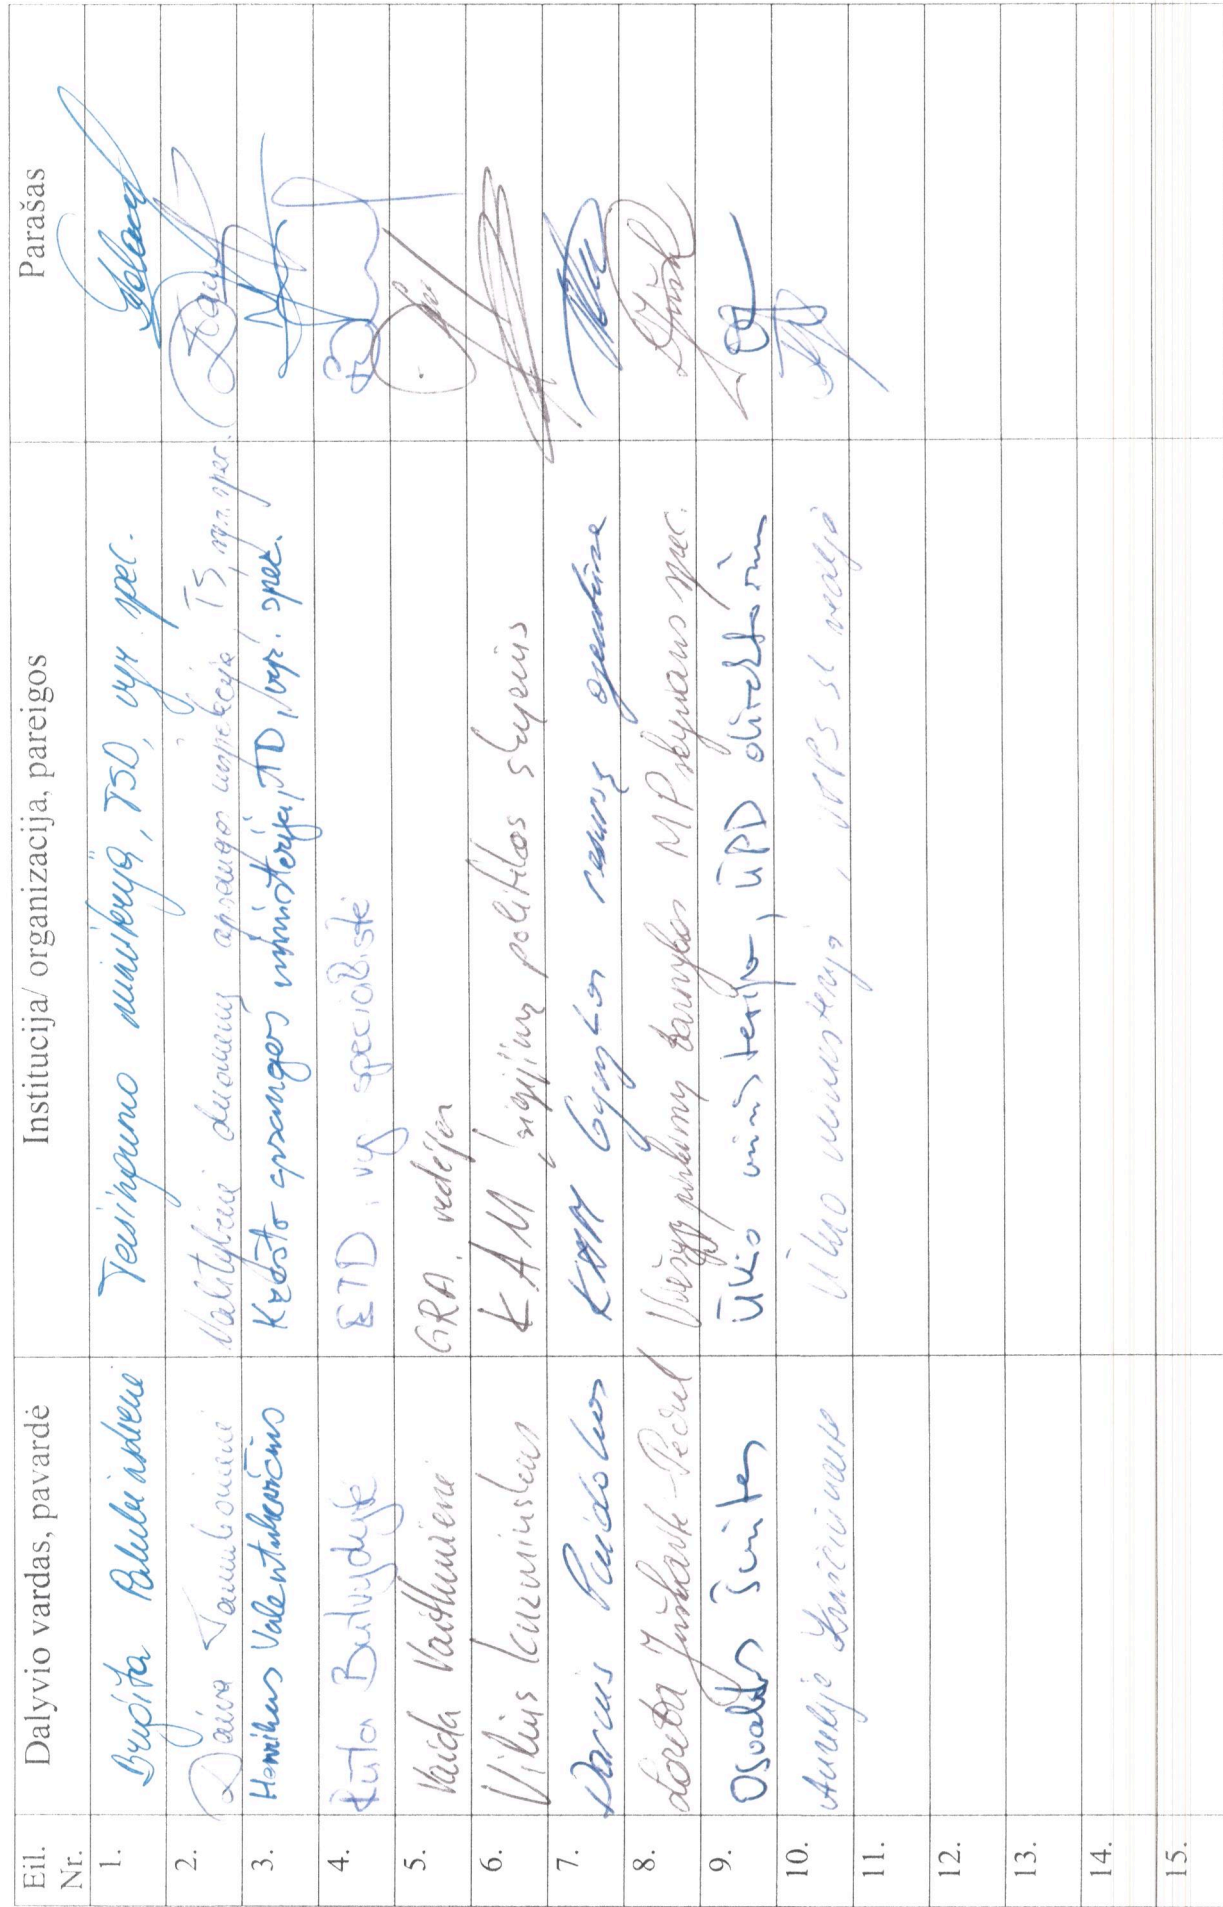 Eil. Nr. Dalyvio vardas, pavardė Institucija/ organizacija, pareigos Parašas
1. Brigita Palubinskienė Teisingumo ministerija, TSD, vyr. spec.
2. Daiva Valstybinė duomenų apsaugos inspekcija, TS, vyr. spec.
3. Henrikas Valentukevičius Krašto apsaugos ministerija, TD, vyr. spec.
4. Rūta Butvydytė ETD, vyr. specialistė
5. Vaida GRA, vedėja
6. Vilius Kuzminskas KAM įsigijimų politikos skyrius
7. Darius KAM Gynybos resursų agentūra
8. Loreta Viešųjų pirkimų tarnybos MP skyriaus spec.
9. Osvaldas Šmitas Ūkio ministerija, ŪPD direktorius
10. Aurelija Ūkio ministerija,
11.
12.
13.
14.
15.